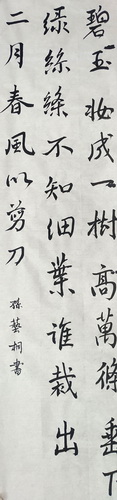 碧玉妝成一樹高萬條垂下
綠絲絛不知細葉誰裁出
二月春風似剪刀
孫藝桐書